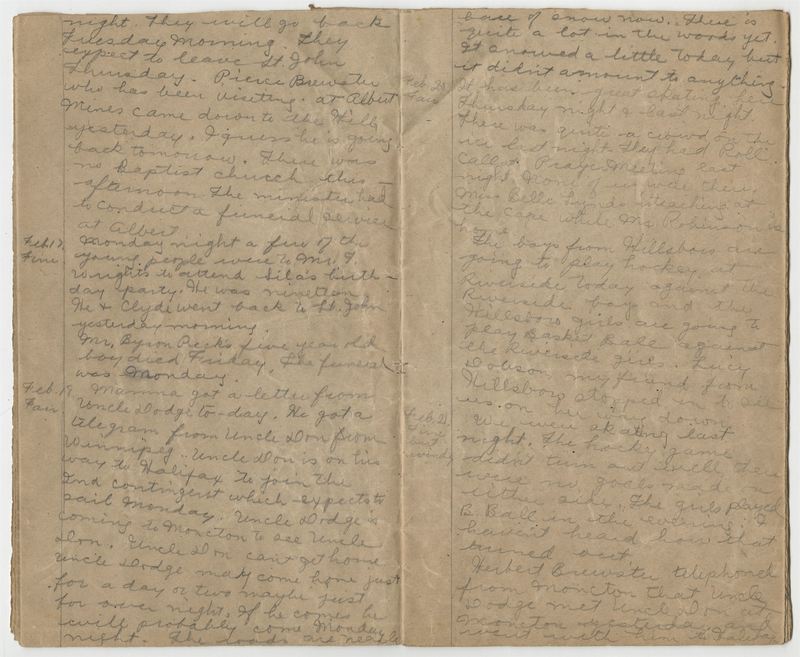 night. They will go back
Tuesday Morning. They
expect to leave St. John
Thursday. Pierce Brewster
who has been visiting at Albert
Mines came down to the Hill
yesterday. I guess he is going
back tomorrow. There was
no Baptist church this
afternoon. The minister had
to conduct a funeral service
at Albert.
Feb. 17
Fine
Monday night a few of the
young people were to Mr. F.
Wrights to attend Sila's birth-
day party. He was nineteen.
He & Clyde went back to St. John
yesterday morning.
Mr. Byron Pecks five year old
boy died Friday. The funeral
was Monday.
Feb. 19
Fair
Mamma got a letter from
Uncle Dodge to-day. He got a
telegram from Uncle Don from
Winnipeg. Uncle Don is on his
way to Halifax to join the
2nd contingent which expects to
sail Monday. Uncle Dodge is
coming to Moncton to see Uncle
Don. Uncle Don can't get home
Uncle Dodge may come home just
for a day or two maybe just
for over night. If he comes he
will probably come Monday
night. The roads are nearly
base of snow now. There is
quite a lot in the woods yet.
It snowed a little today but
it didn't amount to anything.
Feb. 20
Fair
It has been great skating here
Thursday night & last night
There was quite a crowd on the
ice last night. They had Roll
Call & Prayer Meeting last
night. None of us were there.
Miss Belle Lynds is teaching at
the Cape while Ms. Robinson is
home.
The boys from Hillsboro are
going to play hockey at
Riverside today against the
Riverside boys and the
Hillsboro girls are going to
play Basket Ball against
the Riverside girls. Lucy
Dobson my friend from
Hillsboro stopped in to see
us on her way down.
Feb. 21
Fine
but
windy
We were skating last
night. The hockey game
didn't turn out well there
were no goals made on
either side. The girls played
B. Ball in the evening. I
haven't heard how that
turned out.
Herbert Brewster telephoned
from Moncton that Uncle
Dodge met Uncle Don at
Moncton yesterday and
went with him to Halifax